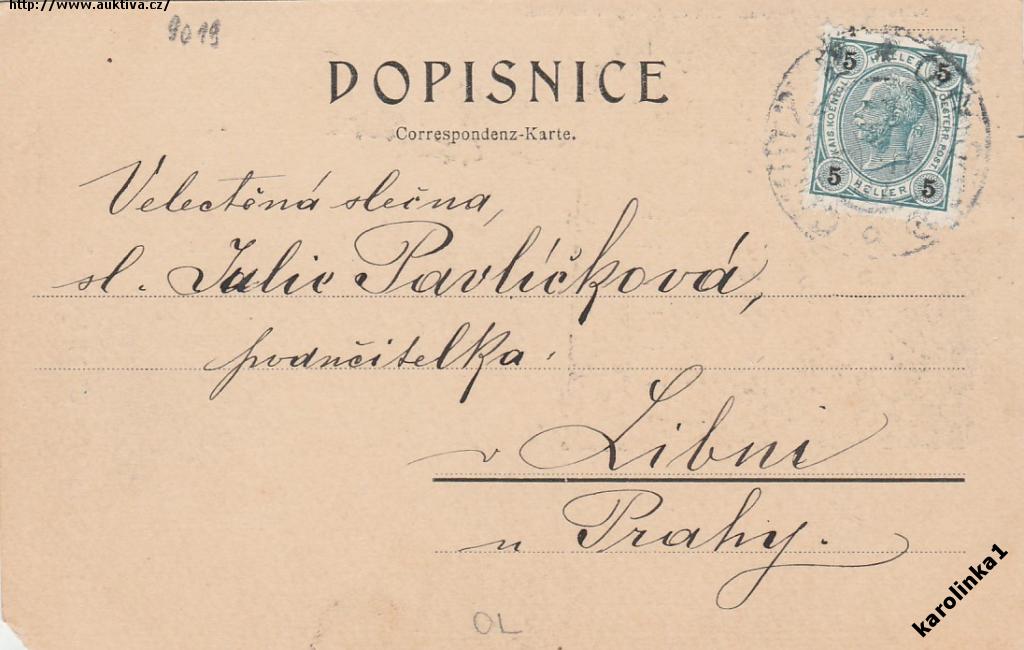 http://www.auktiva.cz/
9019
DOPISNICE
Correspondenz-Karte.
5 HELLER 5
KAIS. KOENIGL. OESTERR. POST.
5 HELLER 5
Velectěná slečna,
sl. Julie Pavlíčková,
podučitelka
v Libni
u Prahy.
OL
karolinka1